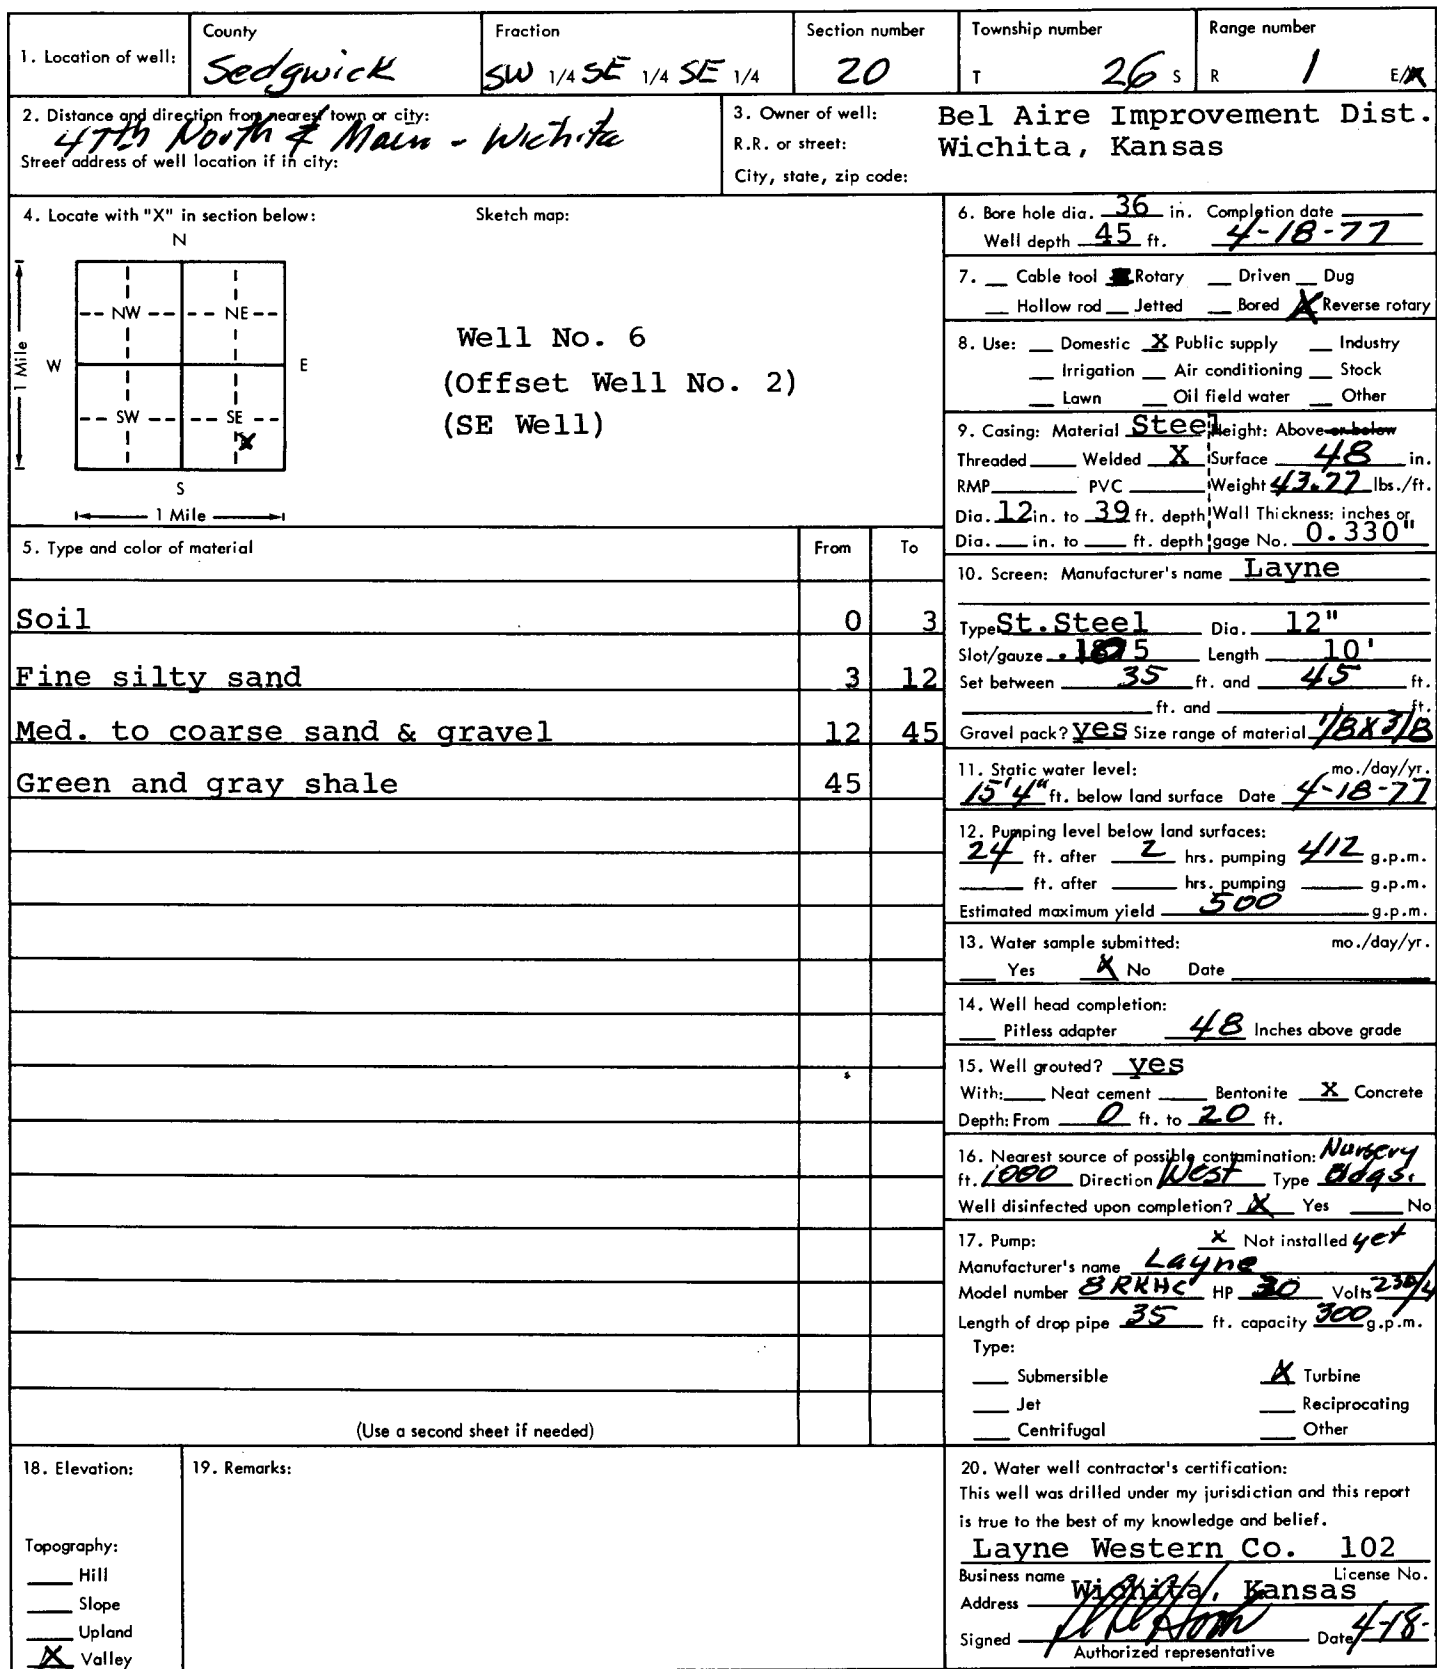 1. Location of well:
County
Sedgwick
Fraction
SW 1/4 SE 1/4 SE 1/4
Section number
20
Township number
T 26 S
Range number
R 1 E/
2. Distance and direction from nearest town or city:
47th North & Main - Wichita
Street address of well location if in city:
3. Owner of well: Bel Aire Improvement Dist.
R.R. or street: Wichita, Kansas
City, state, zip code:
4. Locate with "X" in section below:
Sketch map:
N
NW NE
W E
1 Mile
SW SE
X
S
1 Mile
Well No. 6
(Offset Well No. 2)
(SE Well)
5. Type and color of material From To
Soil 0 3
Fine silty sand 3 12
Med. to coarse sand & gravel 12 45
Green and gray shale 45
(Use a second sheet if needed)
6. Bore hole dia. 36 in. Completion date
Well depth 45 ft. 4-18-77
7. Cable tool Rotary Driven Dug
Hollow rod Jetted Bored X Reverse rotary
8. Use: Domestic X Public supply Industry
Irrigation Air conditioning Stock
Lawn Oil field water Other
9. Casing: Material Steel Height: Above or below
Threaded Welded X Surface 48 in.
RMP PVC Weight 43.77 lbs./ft.
Dia. 12 in. to 39 ft. depth Wall Thickness: inches or
Dia. in. to ft. depth gage No. 0.330"
10. Screen: Manufacturer's name Layne
Type St.Steel Dia. 12"
Slot/gauze Length 10'
Set between 35 ft. and 45 ft.
ft. and ft.
Gravel pack? yes Size range of material 1/8 X 3/8
11. Static water level: mo./day/yr.
15'4" ft. below land surface Date 4-18-77
12. Pumping level below land surfaces:
24 ft. after 2 hrs. pumping 412 g.p.m.
ft. after hrs. pumping g.p.m.
Estimated maximum yield 500 g.p.m.
13. Water sample submitted: mo./day/yr.
Yes X No Date
14. Well head completion:
Pitless adapter 48 Inches above grade
15. Well grouted? yes
With: Neat cement Bentonite X Concrete
Depth: From 0 ft. to 20 ft.
16. Nearest source of possible contamination: Nursery
ft. 1000 Direction West Type Bldgs.
Well disinfected upon completion? X Yes No
17. Pump: X Not installed yet
Manufacturer's name Layne
Model number 8RKHC HP Volts 230/4
Length of drop pipe 35 ft. capacity 300 g.p.m.
Type:
Submersible X Turbine
Jet Reciprocating
Centrifugal Other
18. Elevation:
Topography:
Hill
Slope
Upland
X Valley
19. Remarks:
20. Water well contractor's certification:
This well was drilled under my jurisdiction and this report
is true to the best of my knowledge and belief.
Layne Western Co. 102
Business name License No.
Address Wichita, Kansas
Signed Date 4-18-
Authorized representative